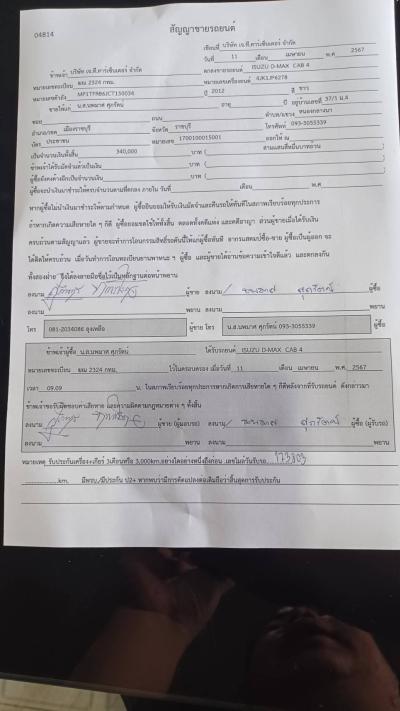 04814
สัญญาขายรถยนต์
เขียนที่ บริษัท เจ.ที.คาร์เซ็นเตอร์ จำกัด
วันที่ 11 เดือน เมษายน พ.ศ 2567
ข้าพเจ้า บริษัท เจ.ที.คาร์เซ็นเตอร์ จำกัด ตกลงขายรถยนต์ ISUZU D-MAX CAB 4
หมายเลขทะเบียน 2324 กทม. หมายเลขเครื่องยนต์ 4JK1JP6278
หมายเลขตัวถัง MP1TFR86JCT130034 ปี 2012 สี ขาว
ขายให้แก่ น.ส.นพมาศ ศุภรัตน์ อายุ ปี อยู่บ้านเลขที่ 37/1 ม.4
ซอย ถนน ตำบล/แขวง หนองกลางนา
อำเภอ/เขต เมืองราชบุรี จังหวัด ราชบุรี โทรศัพท์ 093-3055339
บัตร ประชาชน หมายเลข 1700100015001 ออกให้ ณ
เป็นจำนวนเงินทั้งสิ้น 340,000 บาท ( สามแสนสี่หมื่นบาทถ้วน
ข้าพเจ้าได้รับมัดจำแล้วเป็นเงิน บาท (
ผู้ซื้อยังคงค้างอีกเป็นจำนวนเงิน บาท (
ผู้ซื้อจะนำเงินมาชำระให้ครบจำนวนตามที่ตกลง ภายใน วันที่ เดือน พ.ศ.
หากผู้ซื้อไม่นำเงินมาชำระให้ตามกำหนด ผู้ซื้อยินยอมให้ริบเงินมัดจำและคืนรถให้ทันทีในสภาพเรียบร้อยทุกประการ
ถ้าหากเกิดความเสียหายใด ๆ ก็ดี ผู้ซื้อยอมชดใช้ให้ทั้งสิ้น ตลอดทั้งคดีแพ่ง และคดีอาญา ส่วนผู้ขายเมื่อได้รับเงิน
ครบถ้วนตามสัญญาแล้ว ผู้ขายจะทำการโอนกรรมสิทธิ์รถคันนี้ให้แก่ผู้ซื้อทันที
ได้ติดให้ครบถ้วน เมื่อวันทำการโอนทะเบียนยานพาหนะ ๆ ผู้ซื้อ และผู้ขายได้อ่านข้อความเข้าใจดีแล้ว และตกลงกัน
ทั้งสองฝ่าย จึงได้ลงลายมือชื่อไว้เป็นหลักฐานต่อหน้าพยาน
ลงนาม ผู้ขาย ลงนาม นพมาศ ศุภรัตน์ ผู้ซื้อ
ลงนาม พยาน ลงนาม พยาน
โทร 081-2034086 ลุงเหลือ ผู้ขาย โทร น.ส.นพมาศ ศุภรัตน์ 093-3055339 ผู้ซื้อ
ข้าพเจ้าผู้ซื้อ น.ส.นพมาศ ศุภรัตน์ ได้รับรถยนต์ ISUZU D-MAX CAB 4
หมายเลขทะเบียน 2324 กทม. ไว้ในครอบครอง เมื่อวันที่ 11 เดือน เมษายน พ.ศ. 2567
เวลา 09.09 น. ในสภาพเรียบร้อยทุกประการหากเกิดการเสียหายใด ๆ ก็ดีหลังจากที่รับรถยนต์ ดังกล่าวมา
ข้าพเจ้าขอรับผิดชอบค่าเสียหาย และความผิดตามกฎหมายต่าง ๆ ทั้งสิ้น
ลงนาม ผู้ขาย (ผู้มอบรถ) ลงนาม นพมาศ ศุภรัตน์ ผู้ซื้อ (ผู้รับรถ)
ลงนาม พยาน ลงนาม พยาน
หมายเหตุ รับประกันเครื่อง+เกียร์ 3เดือนหรือ 3,000km.อย่างใดอย่างหนึ่งถึงก่อน เลขไมล์วันรับรถ 173803
km. มีพรบ./มีประกัน ป2+ หากพบว่ามีการดัดแปลงต่อเติมถือว่าสิ้นสุดการรับประกัน